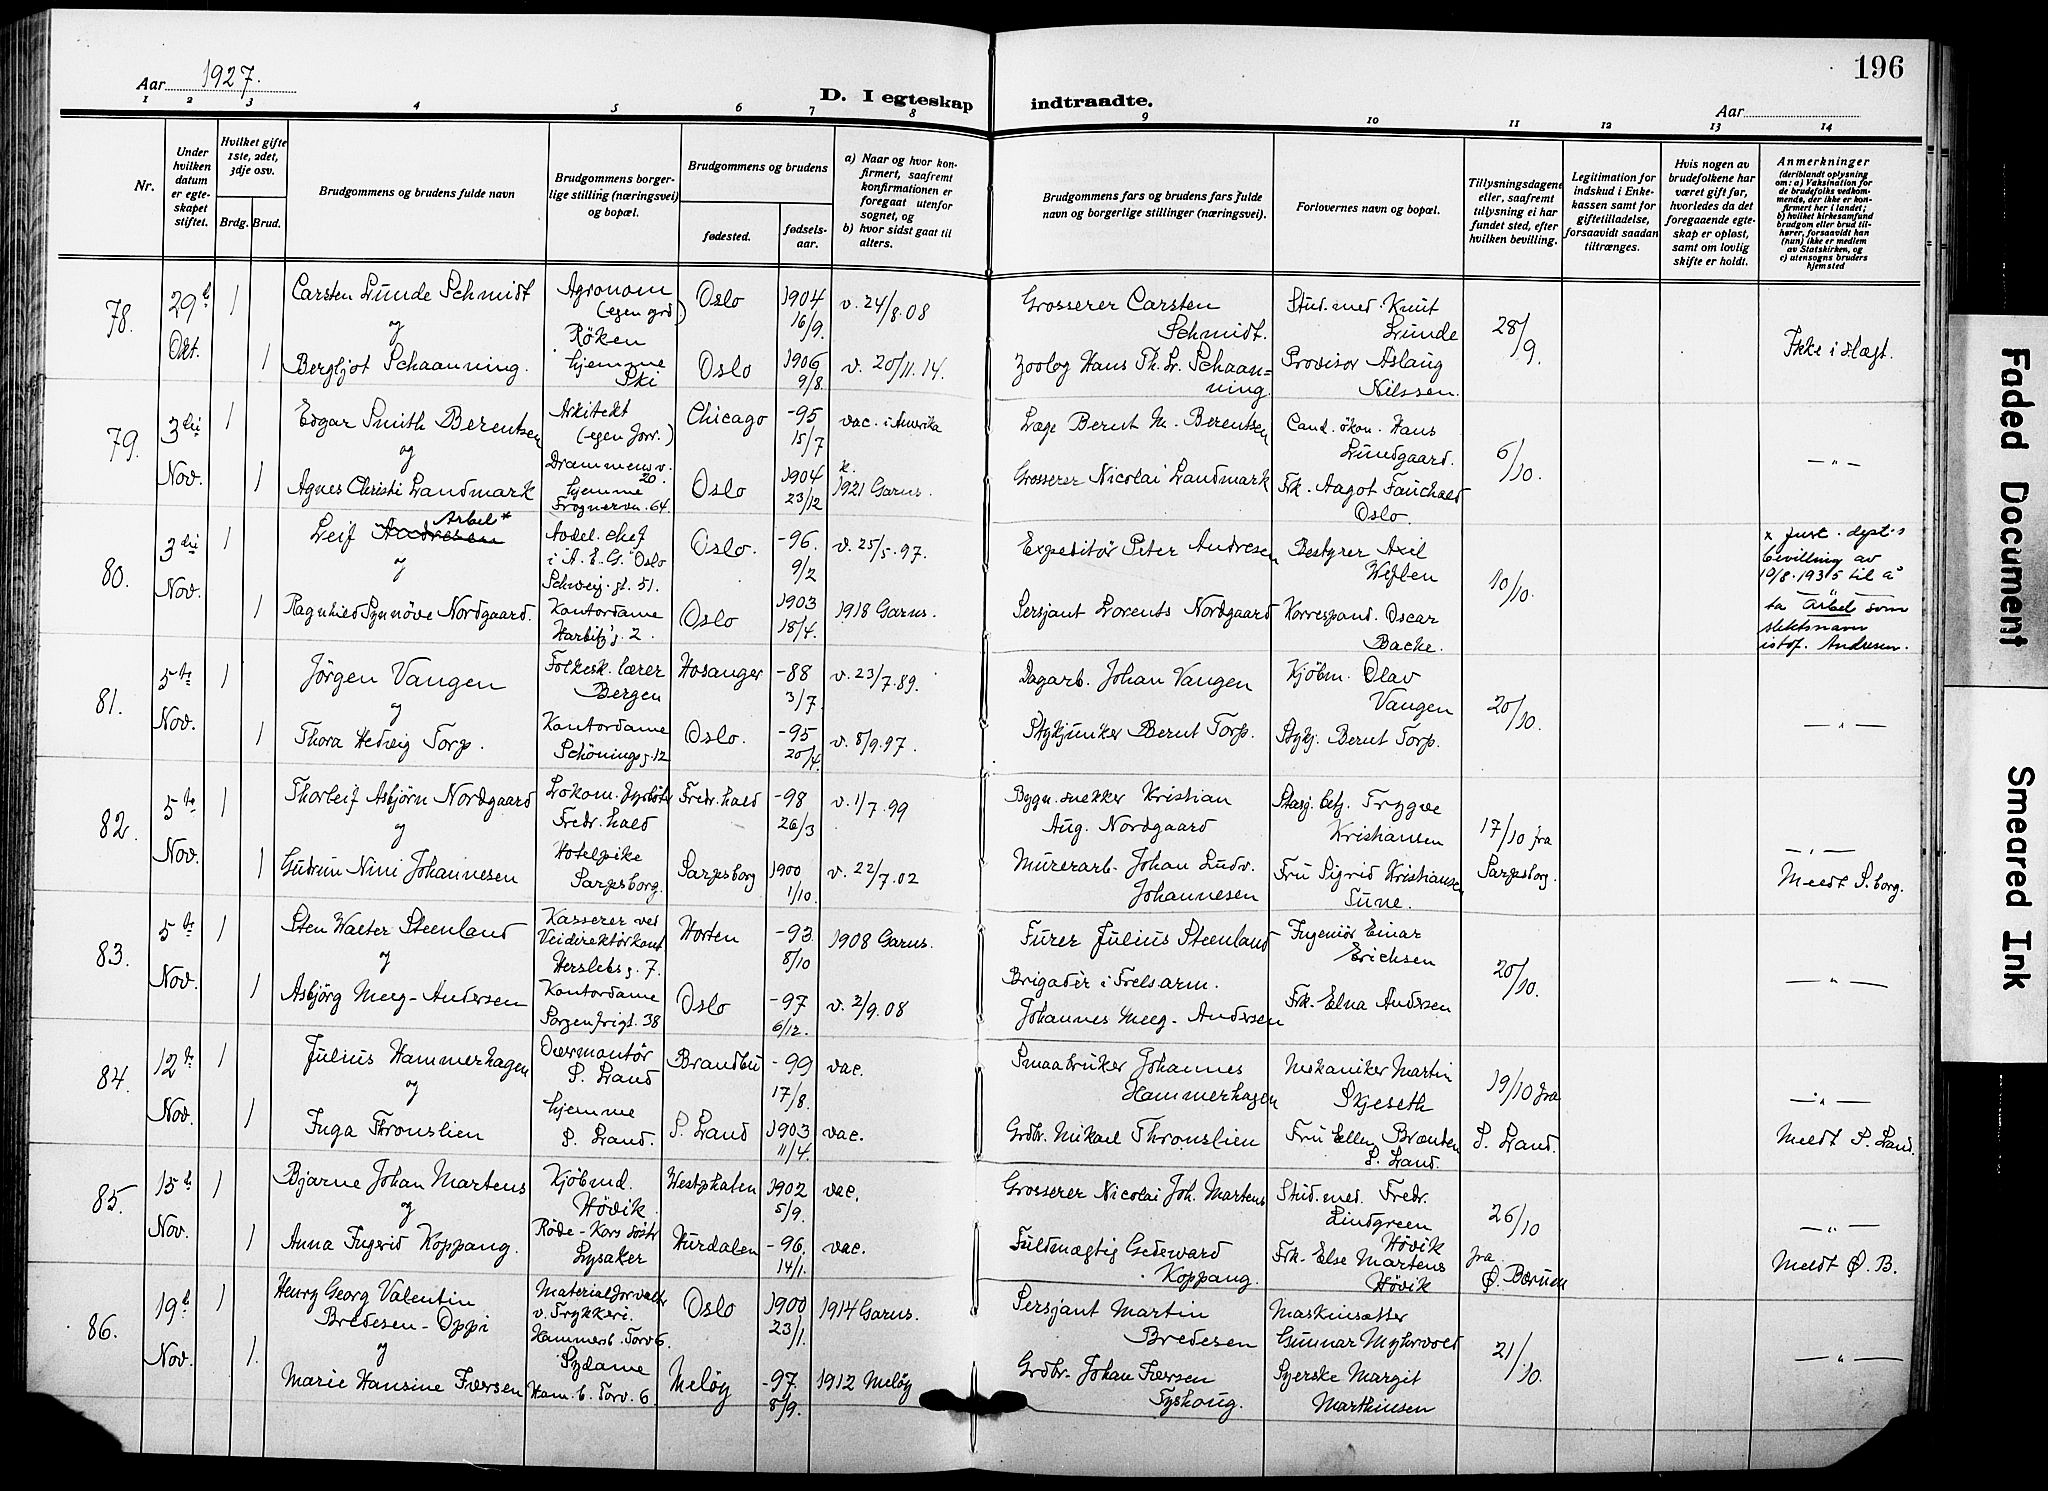 Aar 1927.
D. I egteskap indtraadte.
Aar
196
1 2 3 4 5 6 7 8 9 10 11 12 13 14
Nr.
Under hvilken datum er egteskapet stiftet.
Hvilket gifte 1ste, 2det, 3dje osv.
Brdg. Brud.
Brudgommens og brudens fulde navn
Brudgommens borgerlige stilling (næringsvei) og bopæl.
Brudgommens og brudens
fødested.
fødselsaar.
a) Naar og hvor konfirmert, saafremt konfirmationen er foregaat utenfor sognet, og
b) hvor sidst gaat til alters.
Brudgommens fars og brudens fars fulde navn og borgerlige stillinger (næringsvei).
Forlovernes navn og bopæl.
Tillysningsdagene eller, saafremt tillysning ei har fundet sted, efter hvilken bevilling.
Legitimation for indskud i Enkekassen samt for giftetilladelse, forsaavidt saadan tiltrænges.
Hvis nogen av brudefolkene har været gift før, hvorledes da det foregaaende egteskap er opløst, samt om lovlig skifte er holdt.
Anmerkninger
(deriblandt oplysning om: a) Vaksination for de brudefolks vedkommende, der ikke er konfirmert her i landet; b) hvilket kirkesamfund brudgom eller brud tilhører, forsaavidt han (hun) ikke er medlem av Statskirken, og c) utensogns bruders hjemsted
78. 29de Okt. 1 Carsten Lunde Schmidt Agronom (egen grd) Röken Oslo 1904 16/9. v. 24/8.08 Grosserer Carsten Schmidt. Stud. med. Knut Lunde 28/9. Ikke i slegt.
og
1 Bergljot Schaanning. hjemme Ski Oslo 1906 9/8. v. 20/11.14. Zoolog Hans Th. L. Schaanning. Provisor Aslaug Nilssen.
79. 3die Nov. 1 Edgar Smith Berentsen Arkitekt (egen forr.) Drammensv. 20. Chicago -95 15/7 vac. i Amerika Læge Bernt M. Berentsen Cand. ökon. Hans Lundgaard. 6/10. — " —
og
1 Agnes Christi Landmark hjemme Frognervn. 64. Oslo 1904 23/12 k. 1921 Garns. Grosserer Nicolai Landmark Frk. Aagot Fauchald Oslo.
80. 3die Nov. 1 Leif Andresen Arbel* Avdel. chef i A. E. G. Oslo Schweig. gt. 51. Oslo. -96. 9/2 v. 25/5.97. Expeditör Peter Andresen Bestyrer Axil Weflen 10/10. x Just. dept.s bevilling av 19/8.1935 til å ta Arbel som slektsnavn istdf. Andresen.
og
1 Ragnhild Synnöve Nordgaard. Kontordame Harbitz'g. 2. Oslo 1903 18/4. 1918 Garns. Sersjant Lorents Nordgaard Korrespond. Oscar Backe.
81. 5te Nov. 1 Jörgen Vangen Folkesk. lærer Bergen Hosanger -88 3/7 v. 23/7.89. Dagarb. Johan Vangen Kjöbm. Olav Vangen 20/10. — " —
og
1 Thora Hedvig Torp. Kontordame Schönings g. 12 Oslo. -95 20/4. v. 8/9.97. Stykjunker Bernt Torp. Stykj. Bernt Torp.
82. 5te Nov. 1 Thorleif Asbjörn Nordgaard Lokom. fyrböter Fredr. hald Fredr. hald -98 26/3 v. 1/7.99 Bygn. snekker Kristian Aug. Nordgaard Stasj. betj. Trygve Kristiansen 17/10 fra Sarpsborg. — " —
og
1 Gudrun Nini Johannesen Hotelpike Sarpsborg. Sarpsborg 1900 1/10. v. 22/7.02 Murerarb. Johan Ludv. Johannesen Fru Sigrid Kristiansen Tune. Meldt S. borg.
83. 5te Nov. 1 Sten Walter Steenland Kasserer ved Veidirektörkont Herslebs g. 7. Horten -93. 8/10 1908 Garns. Furer Julius Steenland Ingeniör Einar Erichsen 20/10. — " —
og
1 Asbjörg Meeg-Andersen Kontordame Sorgenfrigt. 38 Oslo -97 6/12. v. 2/9.08 Brigader i Frelsarm. Johannes Meeg-Andersen Frk. Elna Andersen
84. 12te Nov. 1 Julius Hammerhagen Overmontör S. Land Brandbu -99 17/8. vac. Smaabruker Johannes Hammerhagen Mekaniker Martin Skjeseth 19/10 fra S. Land. — " —
og
1 Inga Thronslien hjemme S. Land. S. Land 1903 11/4. vac. Grdbr. Mikael Thronslien Fru Ellen Brænden S. Land. Meldt S. Land.
85. 15de Nov. 1 Bjarne Johan Martens Kjöbmd. Hövik. Westphalen 1902 5/9. vac. Grosserer Nicolai Joh. Martens Stud. med. Fredr. Lindgreen Hövik 26/10 fra Ø. Bærum — " —
og
1 Anna Ingerid Koppang. Röde-Kors söster Lysaker Hurdalen -96. 14/1. vac. Fuldmægtig Gedeward Koppang. Frk. Else Martens Hövik Meldt Ø. B.
86. 19de Nov. 1 Henry Georg Valentin Bredesen-Oppi Materialforvalter v. Trykkeri. Hammersb. Torv 6. Oslo 1900 23/1. 1914 Garns. Sersjant Martin Bredesen Maskinsætter Gunnar Myhrvold 21/10. — " —
og
1. Marie Hansine Færsen Sydame Ham. b. Torv. 6. Melöy -97. 8/9. 1912 Melöy Grdbr. Johan Færsen Tyshoug. Syerske Margit Marthinsen
Faded Document
Smeared Ink